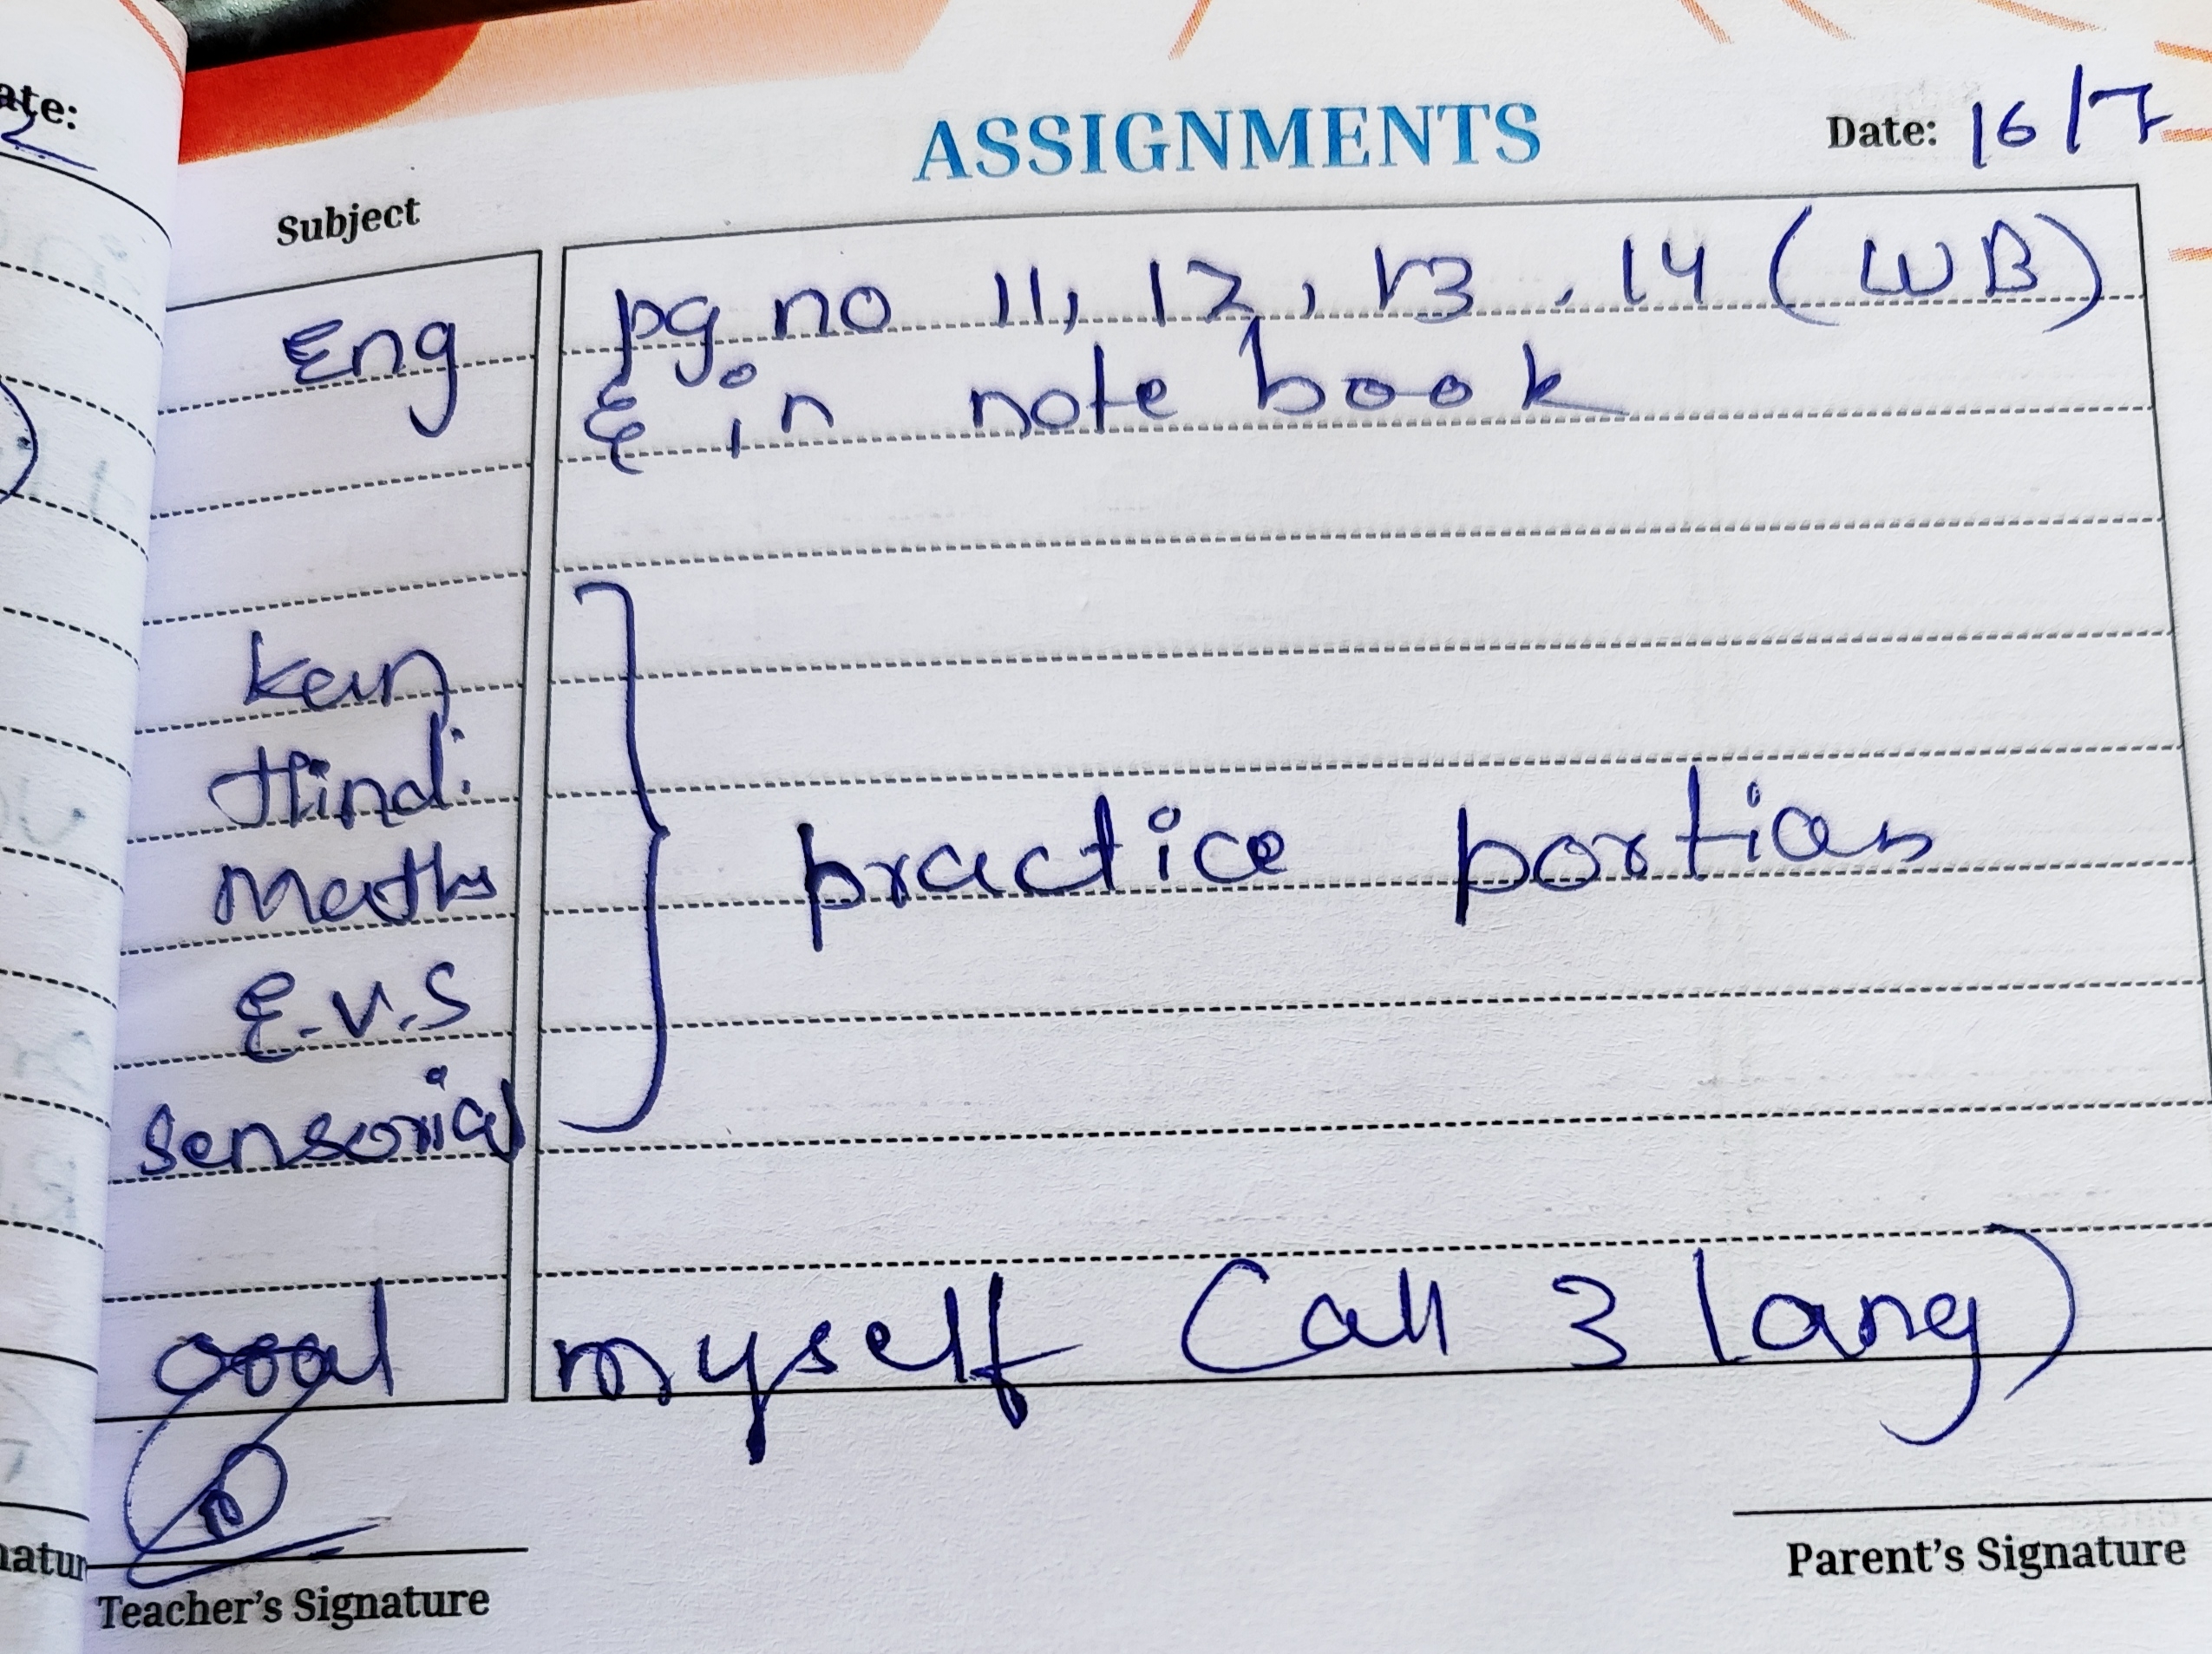 ate:
2
ASSIGNMENTS Date: 16/7
Subject
Eng pg no 11, 12, 13, 14 (WB)
& in note book
kan
Hindi
Maths practice portion
E.V.S
Sensorial
oral myself (all 3 lang)
natur
Teacher's Signature Parent's Signature